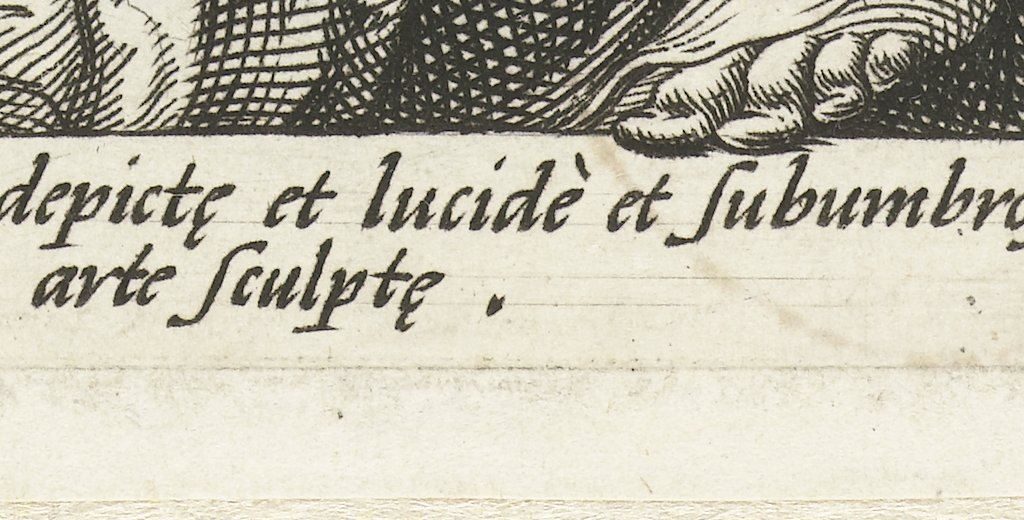 depictę et lucidè et ſubumbrę
arte ſculptę .